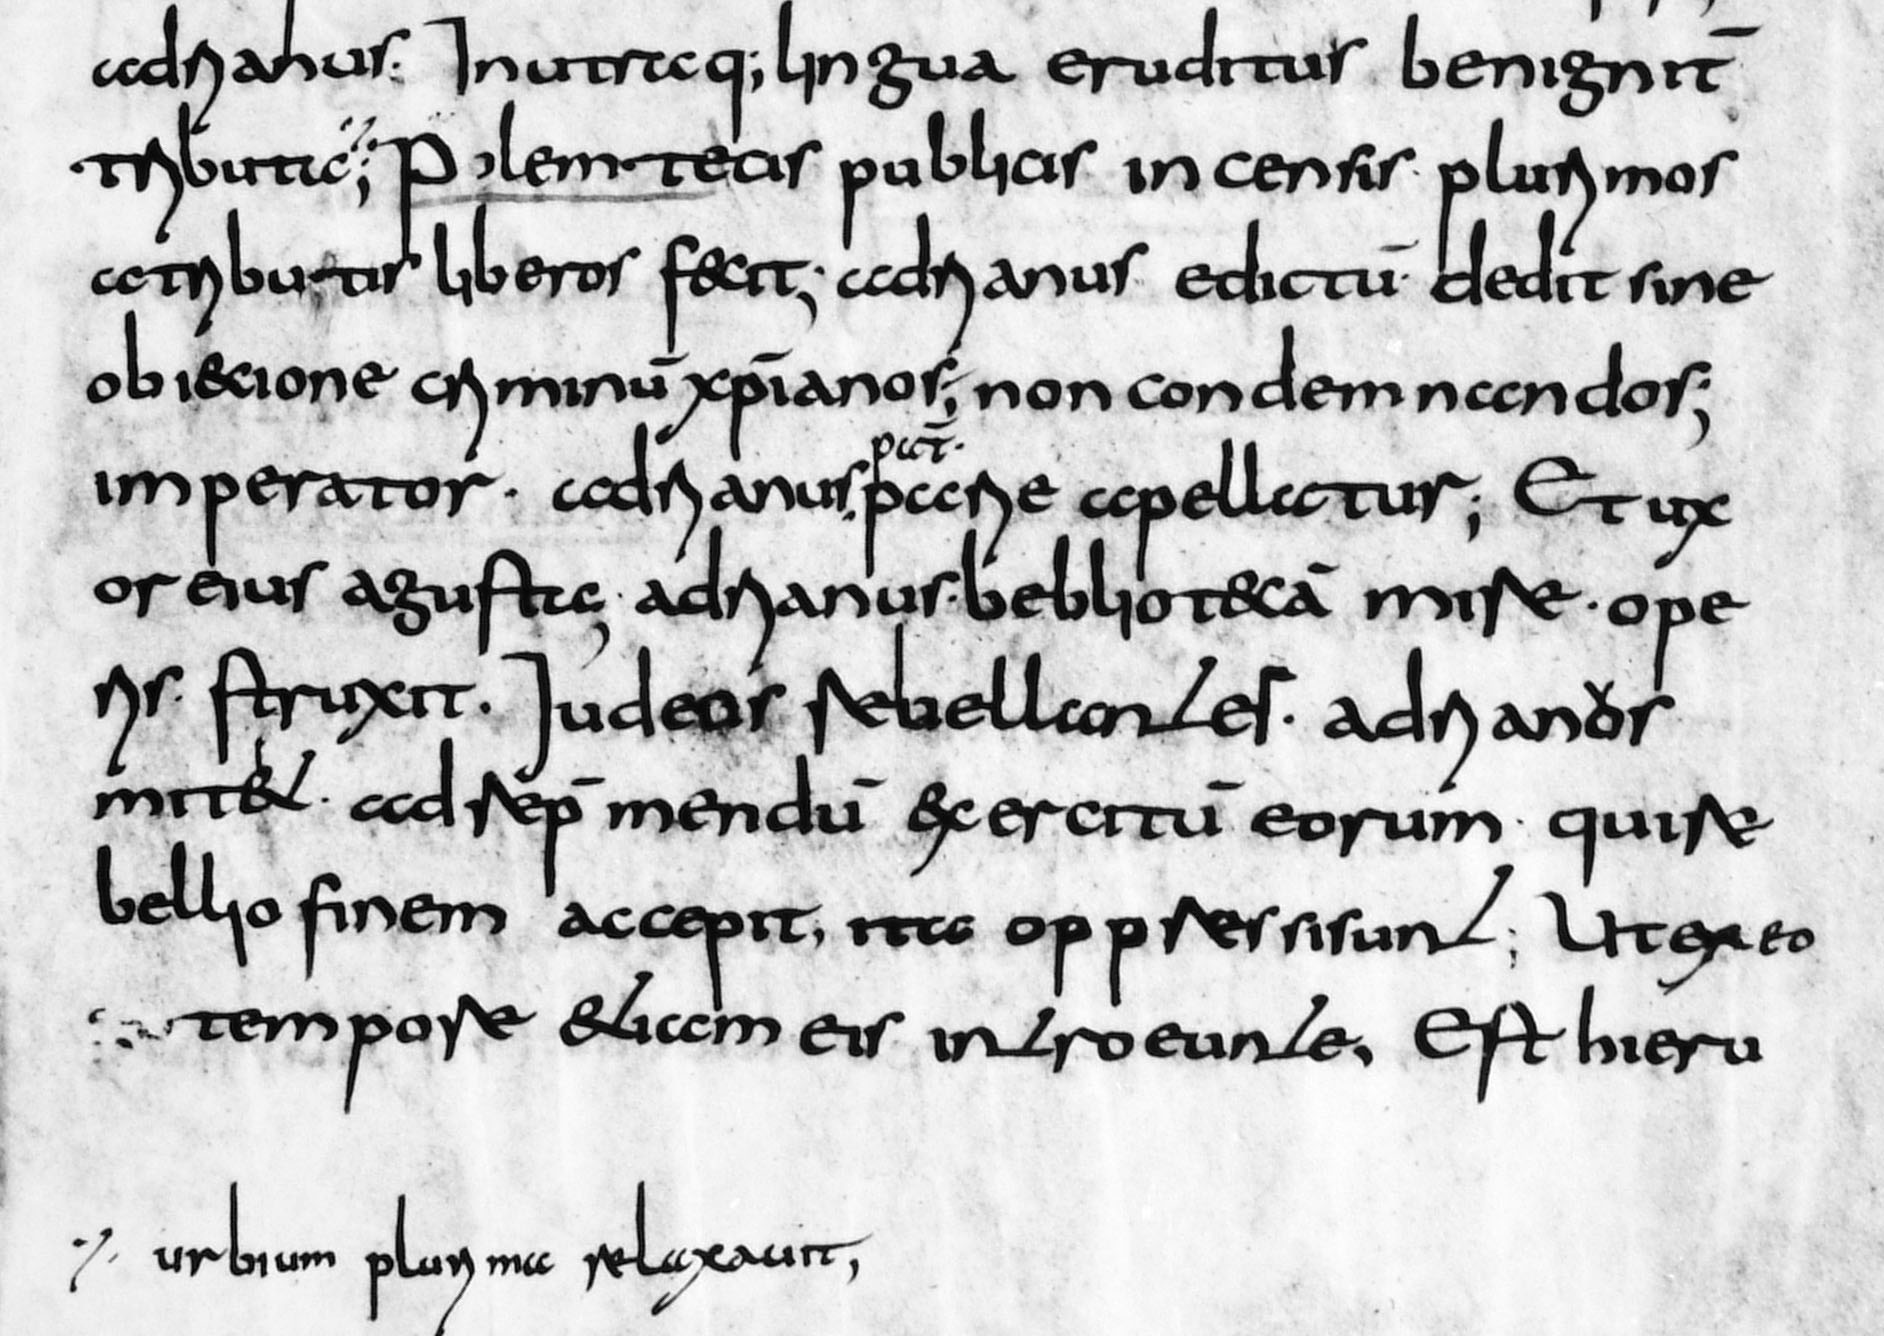 adrianus. Inutraq; lingua eruditus benignit̄
tributa; Polemtecis publicis incensis. plurimos
atributis liberos fecit; adrianus edictū dedit sine
obiectione criminū xp̄ianos; non condemnandos;
imperator. adrianus. patriae apellatur; Et ux
pat̄.
or eius agusta; adrianus. bebliotecā mire. ope
ris. struxit. Judeos rebellantes. adrianus
mittet. ad rep̄mendū exercitū eorum. qui re
bellio finem accepit, ita oppressi sunt; Ut ex eo
tempore etiam eis introeunte, Est hieru
⁒ urbium plurima relaxauit,